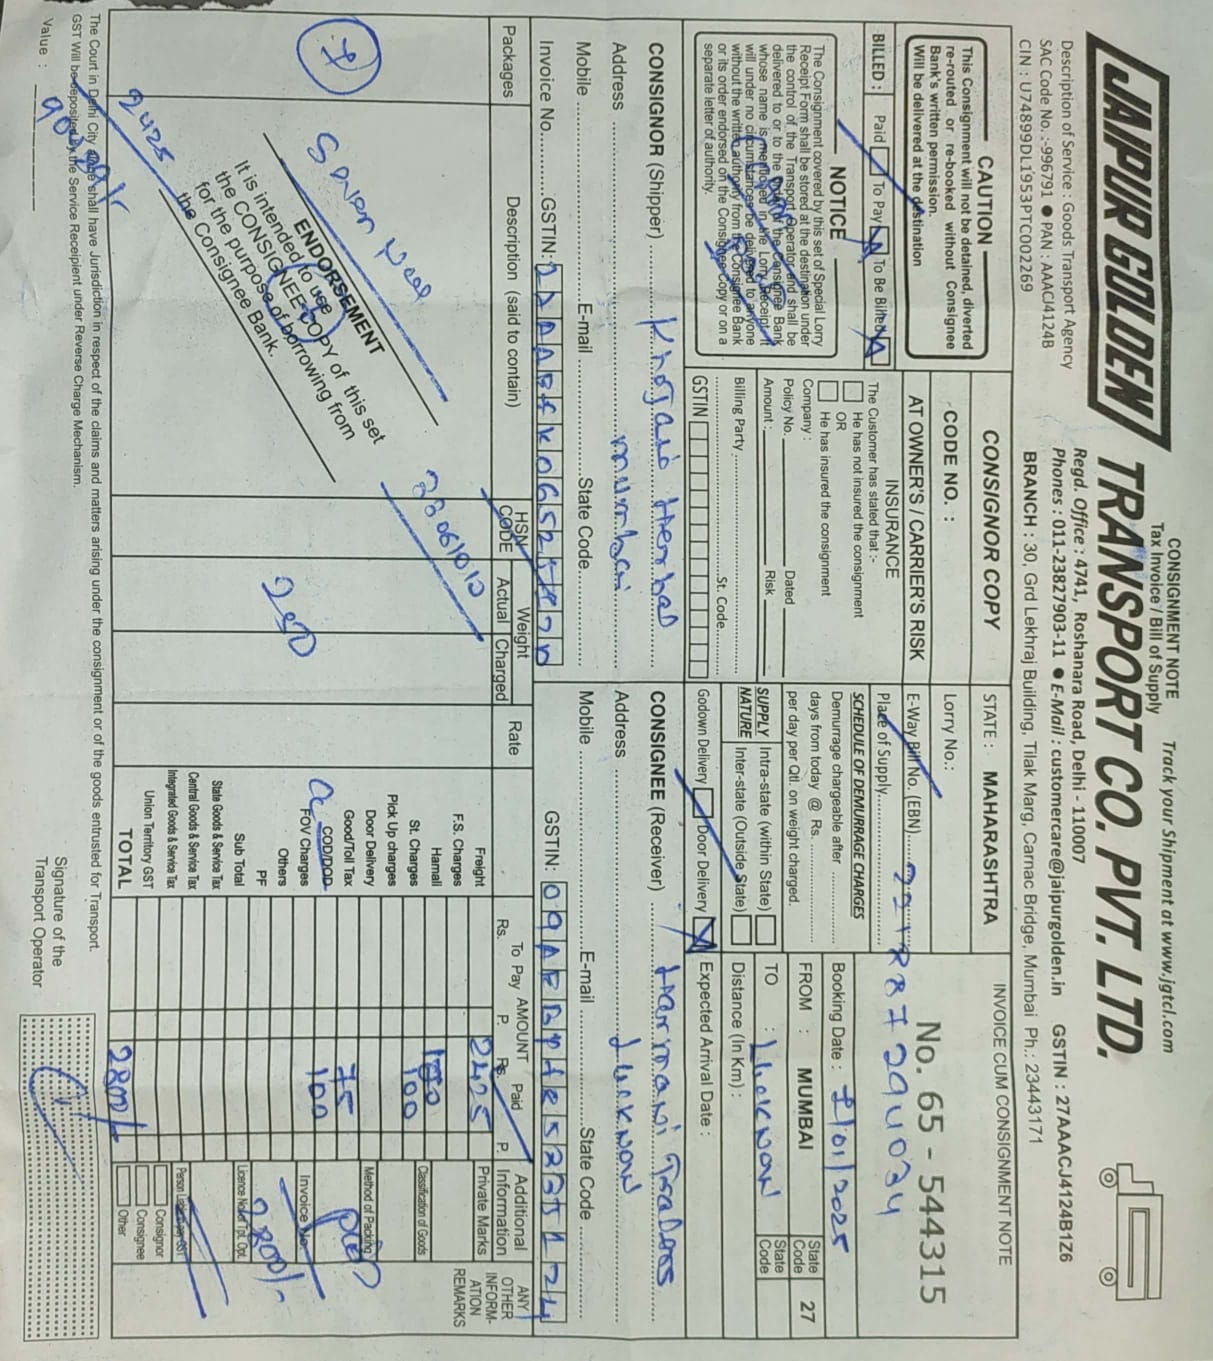 CONSIGNMENT NOTE
Tax Invoice / Bill of Supply
Track your Shipment at www.jgtcl.com
JAIPUR GOLDEN TRANSPORT CO. PVT. LTD.
Regd. Office : 4741, Roshanara Road, Delhi - 110007
Phones : 011-23827903-11 ● E-Mail : customercare@jaipurgolden.in GSTIN : 27AAACJ4124B1Z6
Description of Service : Goods Transport Agency
SAC Code No.:-996791 ● PAN : AAACJ4124B
CIN : U74899DL1953PTC002269
BRANCH : 30, Grd Lekhraj Building, Tilak Marg, Carnac Bridge, Mumbai Ph.: 23443171
CAUTION
This Consignment will not be detained, diverted
re-routed or re-booked without Consignee
Bank's written permission.
Will be delivered at the destination
CONSIGNOR COPY
CODE NO. :
AT OWNER'S / CARRIER'S RISK
STATE : MAHARASHTRA
Lorry No.:
E-Way Bill No. (EBN)
Place of Supply
INVOICE CUM CONSIGNMENT NOTE
No. 65 - 544315
BILLED : Paid To Pay To Be Billed
NOTICE
The Consignment covered by this set of Special Lorry
Receipt Form shall be stored at the destination under
the control of the Transport Operator and shall be
delivered to or to the order of the Consignee Bank
whose name is mentioned in the Lorry Receipt. It
will under no circumstances be delivered to anyone
without the written authority from the Consignee Bank
or its order endorsed on the Consignee Copy or on a
separate letter of authority.
INSURANCE
The Customer has stated that :-
He has not insured the consignment
OR
He has insured the consignment
Company :
Policy No. Dated
Amount : Risk
Billing Party
St. Code
GSTIN
SCHEDULE OF DEMURRAGE CHARGES
Demurrage chargeable after
days from today @ Rs.
per day per Qtl. on weight charged.
SUPPLY NATURE Intra-state (within State)
Inter-state (Outside State)
Godown Delivery Door Delivery
Booking Date : 7/01/2025
FROM : MUMBAI State Code 27
TO : Lucknow State Code
Distance (In Km) :
Expected Arrival Date :
CONSIGNOR (Shipper) Khojati Herbal
Address mumbai
Mobile E-mail State Code
Invoice No. GSTIN:
CONSIGNEE (Receiver) Harmani Traders
Address Lucknow
Mobile E-mail State Code
GSTIN:
Packages Description (said to contain) HSN CODE Weight Actual Charged Rate
AMOUNT
To Pay Rs. P. Paid Rs. P.
Additional Information
Private Marks
ANY OTHER INFORMATION REMARKS
7
ENDORSEMENT
It is intended to use
the CONSIGNEE COPY of this set
for the purpose of borrowing from
the Consignee Bank.
2425
250
Freight 2425
F.S. Charges
Hamali 100
St. Charges 100
Pick Up charges
Door Delivery
Good/Toll Tax 75
COD/DOD 100
FOV Charges
Others
PF
Sub Total
State Goods & Service Tax
Central Goods & Service Tax
Integrated Goods & Service Tax
Union Territory GST
TOTAL 2800/-
Classification of Goods
Method of Packing
Invoice No.
2800/-
Licence No. of Tpt. Opt.
Person Liable pay GST
Consignor
Consignee
Other
The Court in Delhi City alone shall have Jurisdiction in respect of the claims and matters arising under the consignment or of the goods entrusted for Transport.
GST Will be deposited by the Service Receipient under Reverse Charge Mechanism.
Value :
Signature of the
Transport Operator